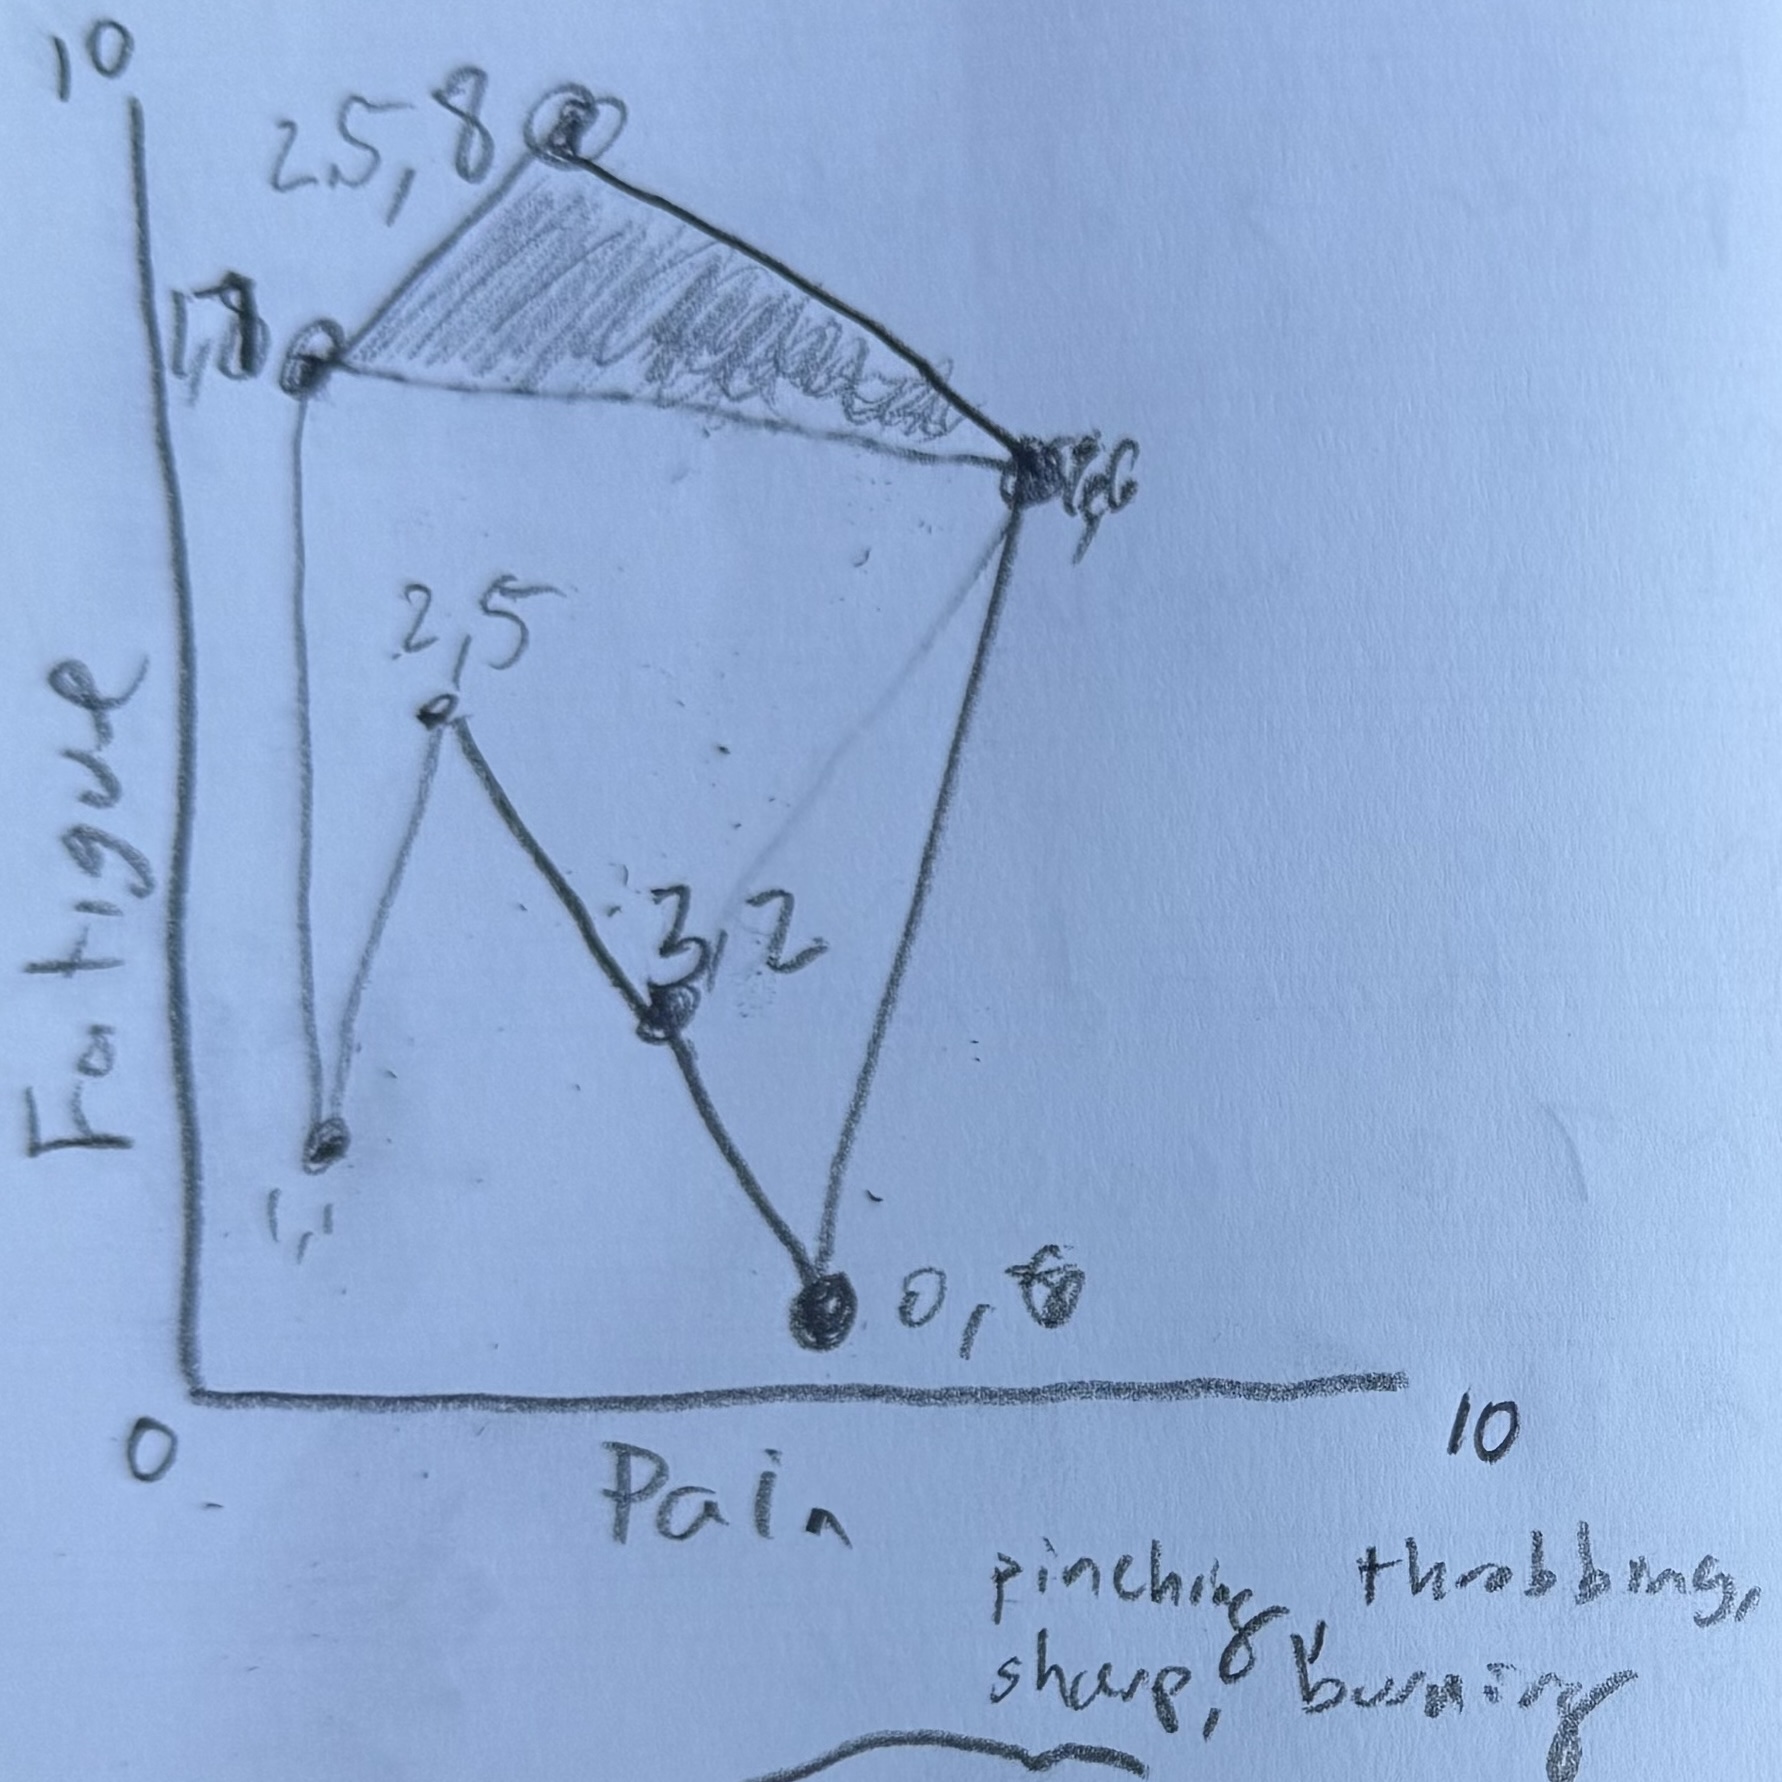 10
2.5, 8
1, 8
6
2, 5
3, 2
1, 1
0,
Fatigue
0
10
Pain
pinching, throbbing,
sharp, burning